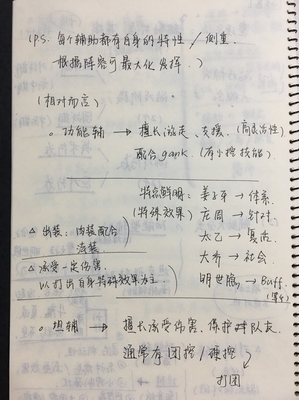 (P.S. 每个辅助都有自身的特性／侧重.
根据阵容可最大化发挥.)
(相对而言)
。功能辅 → 擅长游走、支援.（高灵活性）
配合gank.（有小控技能）
特点鲜明: 姜子牙 → 体系.
(特殊效果) 庄周 → 针对.
△ 出装: 肉装配合
法装
太乙 → 复活.
△ 承受一定伤害.
大乔 → 社会
以打出自身特殊效果为主.
明世隐 → Buff.
。坦辅 → 擅长承受伤害、保护对队友.
通常有团控／强控
打团